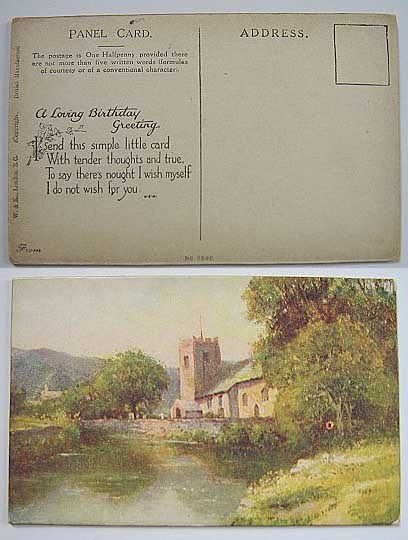 PANEL CARD.
The postage is One Halfpenny provided there
are not more than five written words (formulas
of courtesy or of a conventional character).
A Loving Birthday
Greeting
I send this simple little card
With tender thoughts and true,
To say there's nought I wish myself
I do not wish for you.
ADDRESS.
W. & K., London, E.C. (Copyright. British Manufacture)
From
No